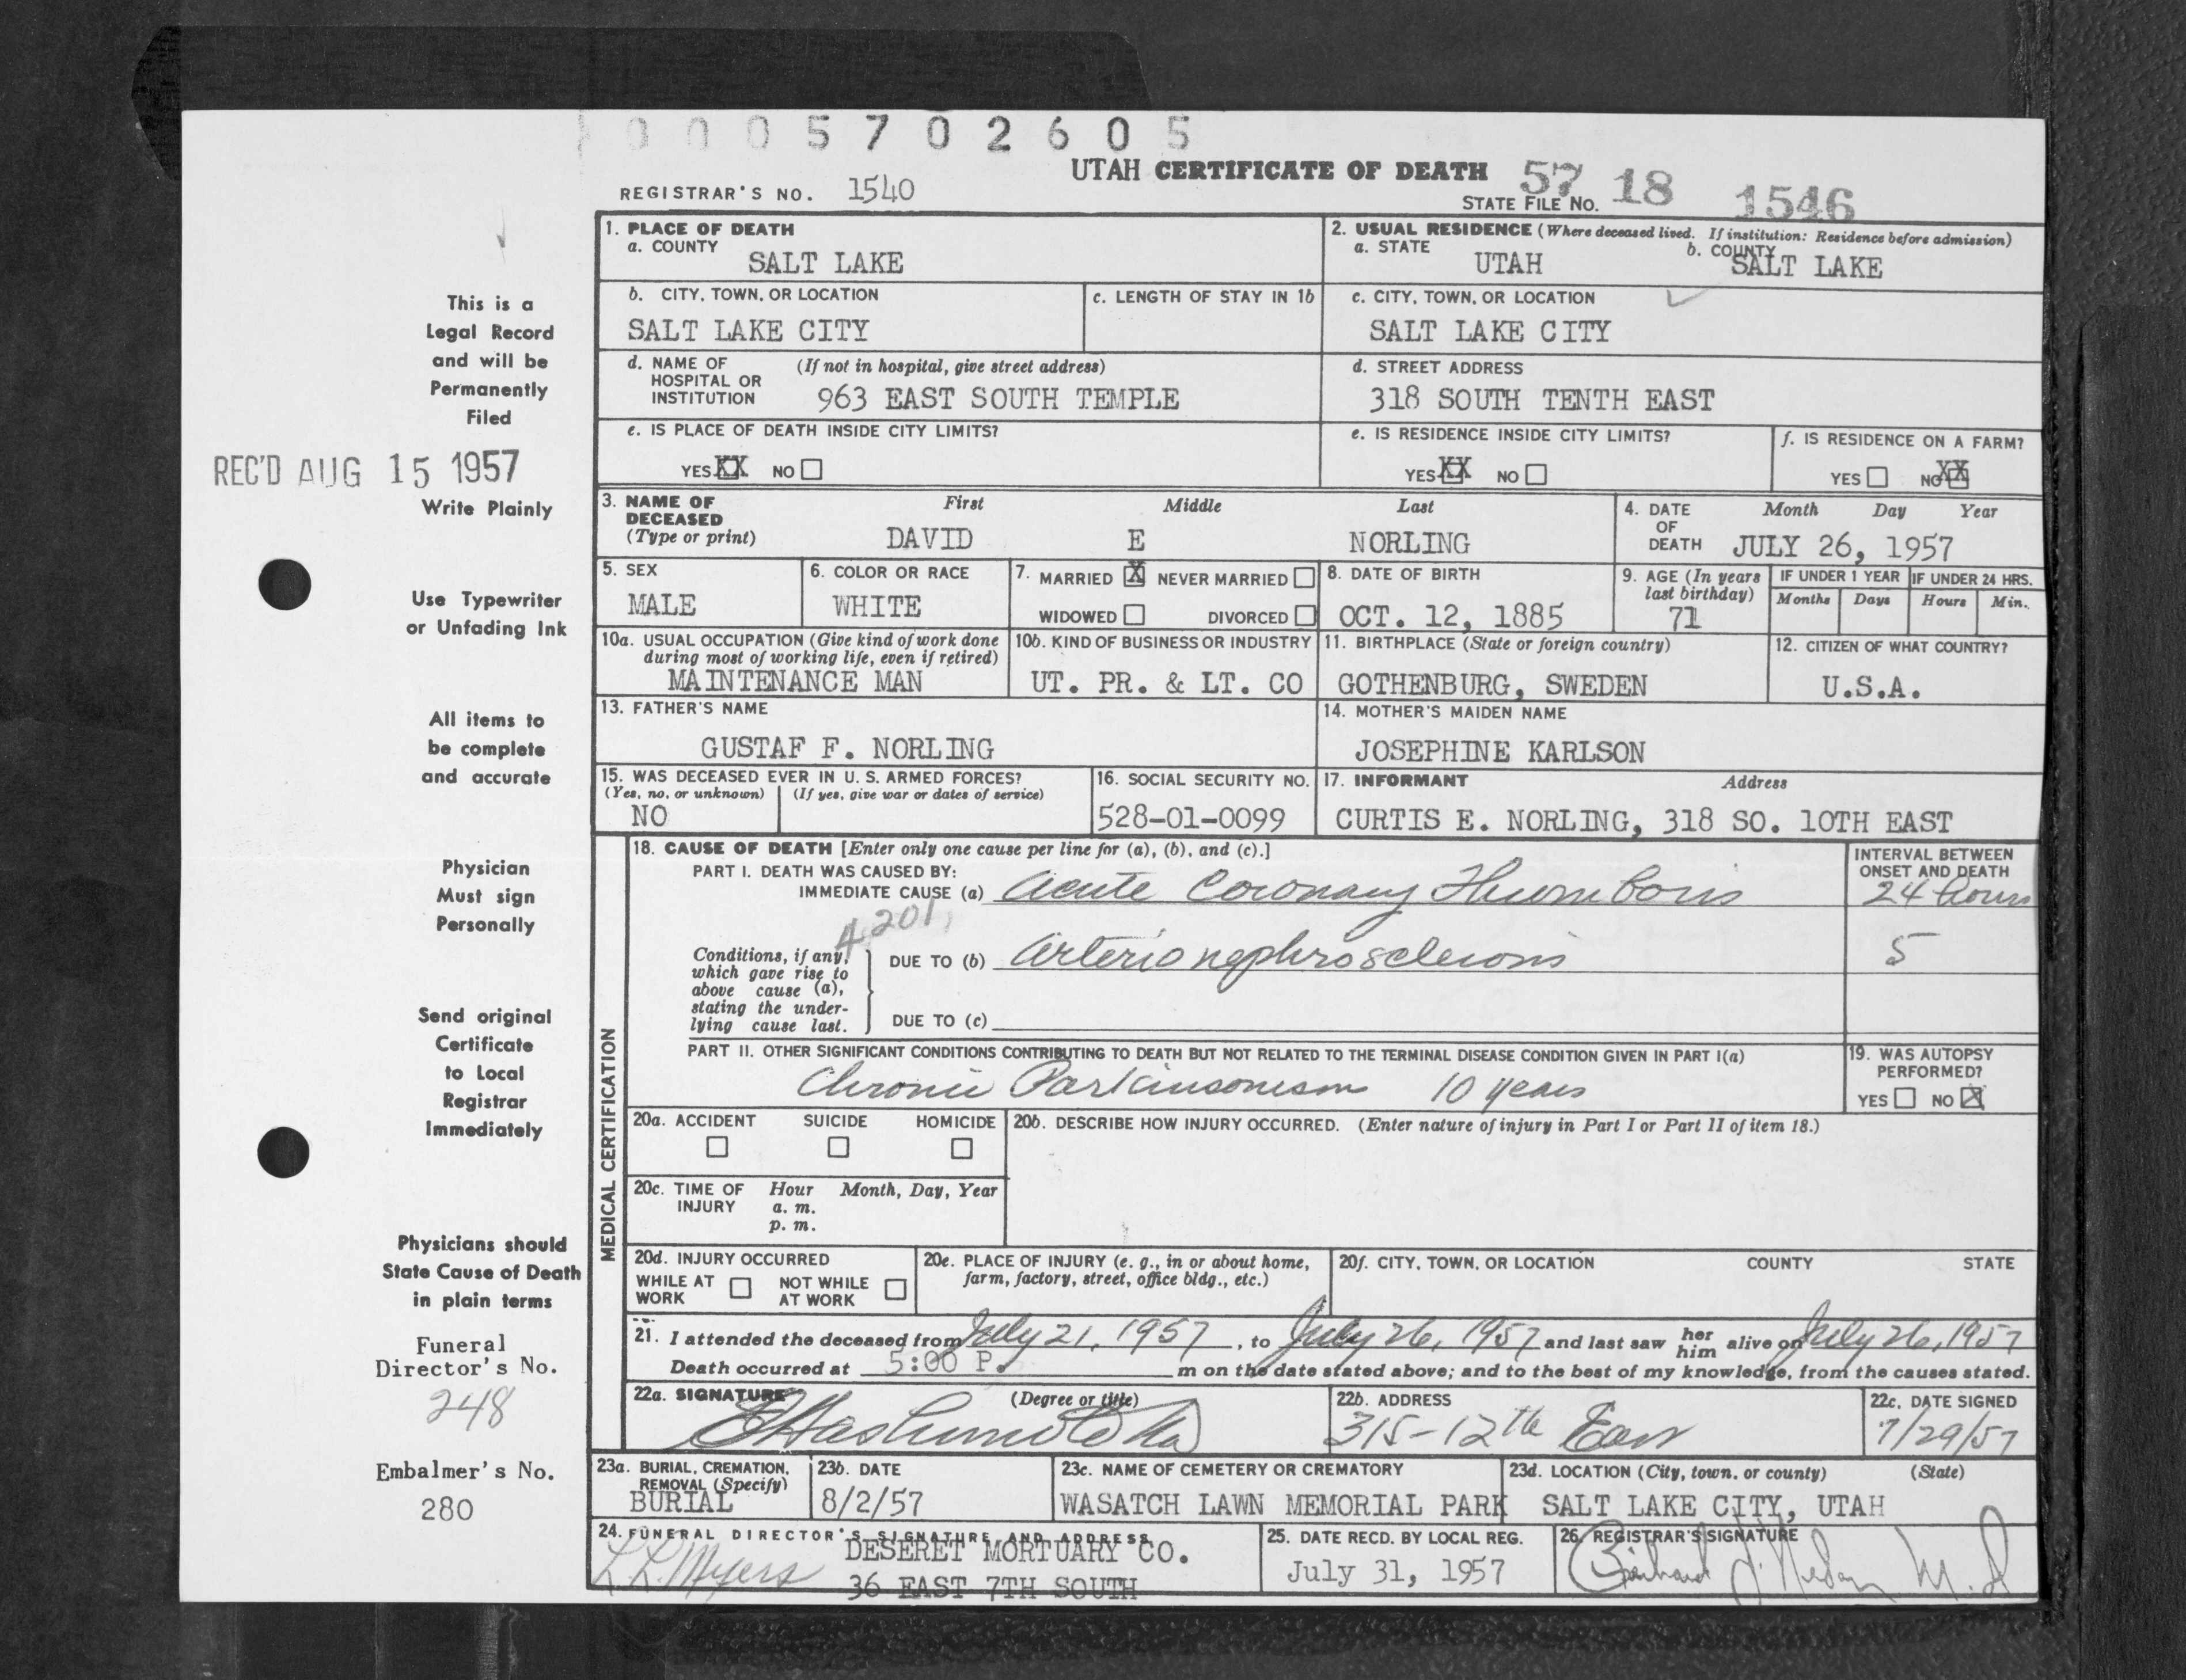 0005702605
UTAH CERTIFICATE OF DEATH
REGISTRAR'S NO. 1540
STATE FILE NO. 57 18 1546
1. PLACE OF DEATH
a. COUNTY
SALT LAKE
2. USUAL RESIDENCE (Where deceased lived. If institution: Residence before admission)
a. STATE
UTAH
b. COUNTY
SALT LAKE
b. CITY, TOWN, OR LOCATION
SALT LAKE CITY
c. LENGTH OF STAY IN 1b
c. CITY, TOWN, OR LOCATION
SALT LAKE CITY
d. NAME OF HOSPITAL OR INSTITUTION
(If not in hospital, give street address)
963 EAST SOUTH TEMPLE
d. STREET ADDRESS
318 SOUTH TENTH EAST
e. IS PLACE OF DEATH INSIDE CITY LIMITS?
YES XX NO
e. IS RESIDENCE INSIDE CITY LIMITS?
YES XX NO
f. IS RESIDENCE ON A FARM?
YES NO XX
3. NAME OF DECEASED (Type or print)
First Middle Last
DAVID E NORLING
4. DATE OF DEATH
Month Day Year
JULY 26, 1957
5. SEX
MALE
6. COLOR OR RACE
WHITE
7. MARRIED X NEVER MARRIED
WIDOWED DIVORCED
8. DATE OF BIRTH
OCT. 12, 1885
9. AGE (In years last birthday)
71
IF UNDER 1 YEAR
Months Days
IF UNDER 24 HRS.
Hours Min.
10a. USUAL OCCUPATION (Give kind of work done during most of working life, even if retired)
MAINTENANCE MAN
10b. KIND OF BUSINESS OR INDUSTRY
UT. PR. & LT. CO
11. BIRTHPLACE (State or foreign country)
GOTHENBURG, SWEDEN
12. CITIZEN OF WHAT COUNTRY?
U.S.A.
13. FATHER'S NAME
GUSTAF F. NORLING
14. MOTHER'S MAIDEN NAME
JOSEPHINE KARLSON
15. WAS DECEASED EVER IN U. S. ARMED FORCES?
(Yes, no, or unknown) (If yes, give war or dates of service)
NO
16. SOCIAL SECURITY NO.
528-01-0099
17. INFORMANT Address
CURTIS E. NORLING, 318 SO. 10TH EAST
MEDICAL CERTIFICATION
18. CAUSE OF DEATH [Enter only one cause per line for (a), (b), and (c).]
PART I. DEATH WAS CAUSED BY:
IMMEDIATE CAUSE (a) Acute Coronary Thrombosis
INTERVAL BETWEEN ONSET AND DEATH
24 hours
4201
Conditions, if any, which gave rise to above cause (a), stating the underlying cause last.
DUE TO (b) Arterionephrosclerosis
5
DUE TO (c)
PART II. OTHER SIGNIFICANT CONDITIONS CONTRIBUTING TO DEATH BUT NOT RELATED TO THE TERMINAL DISEASE CONDITION GIVEN IN PART I(a)
Chronic Parkinsonism 10 years
19. WAS AUTOPSY PERFORMED?
YES NO X
20a. ACCIDENT SUICIDE HOMICIDE
20b. DESCRIBE HOW INJURY OCCURRED. (Enter nature of injury in Part I or Part II of item 18.)
20c. TIME OF INJURY
Hour Month, Day, Year
a. m.
p. m.
20d. INJURY OCCURRED
WHILE AT WORK NOT WHILE AT WORK
20e. PLACE OF INJURY (e. g., in or about home, farm, factory, street, office bldg., etc.)
20f. CITY, TOWN, OR LOCATION COUNTY STATE
21. I attended the deceased from July 21, 1957, to July 26, 1957 and last saw her him alive on July 26, 1957
Death occurred at 5:00 P. m on the date stated above; and to the best of my knowledge, from the causes stated.
22a. SIGNATURE (Degree or title)
22b. ADDRESS
315-12th East
22c. DATE SIGNED
7/29/57
23a. BURIAL, CREMATION, REMOVAL (Specify)
BURIAL
23b. DATE
8/2/57
23c. NAME OF CEMETERY OR CREMATORY
WASATCH LAWN MEMORIAL PARK
23d. LOCATION (City, town, or county) (State)
SALT LAKE CITY, UTAH
24. FUNERAL DIRECTOR'S SIGNATURE AND ADDRESS
L. L. Myers
DESERET MORTUARY CO.
36 EAST 7TH SOUTH
25. DATE RECD. BY LOCAL REG.
July 31, 1957
26. REGISTRAR'S SIGNATURE
M.D
This is a
Legal Record
and will be
Permanently
Filed
REC'D AUG 15 1957
Write Plainly
Use Typewriter
or Unfading Ink
All items to
be complete
and accurate
Physician
Must sign
Personally
Send original
Certificate
to Local
Registrar
Immediately
Physicians should
State Cause of Death
in plain terms
Funeral
Director's No.
248
Embalmer's No.
280